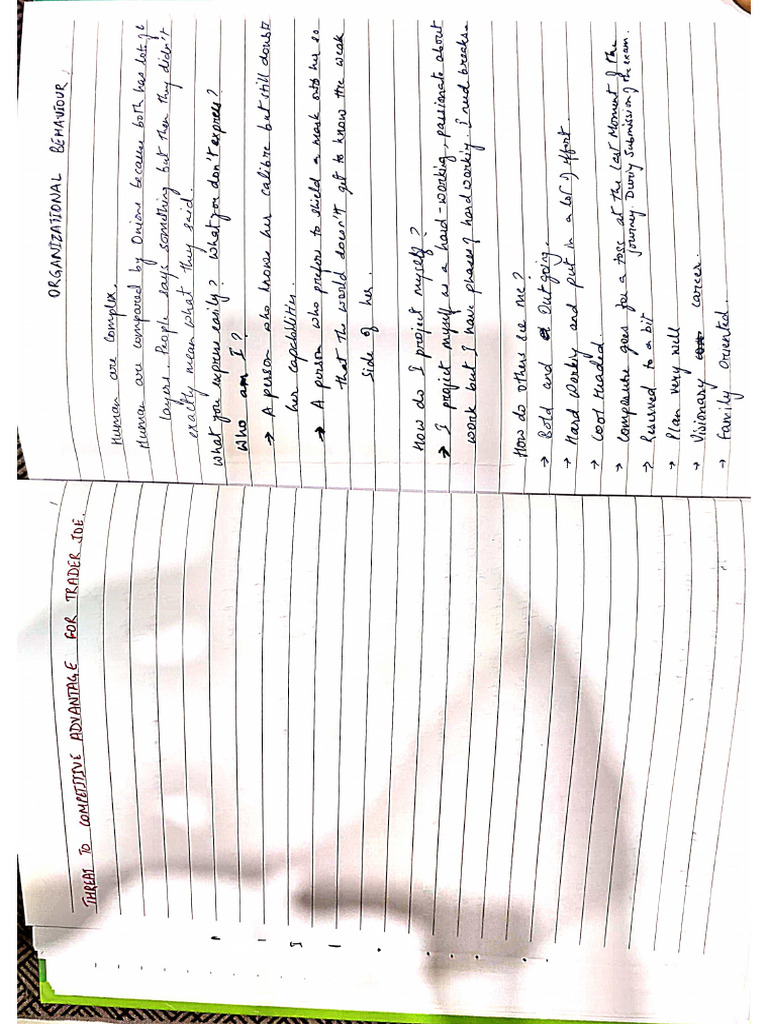 THREAT TO COMPETITIVE ADVANTAGE FOR TRADER JOE.
ORGANIZATIONAL BEHAVIOUR.
Human are complex.
Human are compared by Onions because both has lots of
layers. People says something but then they didn't
exactly mean what they said.
What you express easily? What you don't express?
Who am I?
→ A person who knows her calibre but still doubts
her capabilities.
→ A person who prefers to shield a mask onto her so
that the world doesn't get to know the weak
side of her.
How do I project myself?
→ I project myself as a hard-working, passionate about
work but I have phases of hard working. I need breaks.
How do others see me?
→ Bold and Outgoing.
→ Hard Working and put in a lot of effort.
→ Cool Headed.
→ Composure goes for a toss at the last Moment of the
journey. During submission of the exam.
→ Reserved to a bit
→ Plan very well
→ Visionary career.
→ Family Oriented.